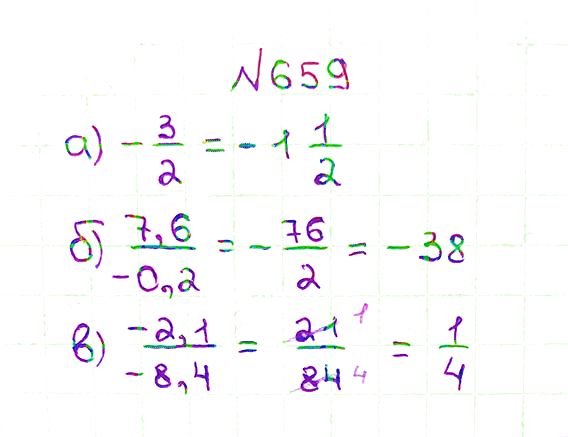 №659
а) -3/2 = -1 1/2
б) 7,6/-0,2 = -76/2 = -38
в) -2,1/-8,4 = 21 1/84 4 = 1/4